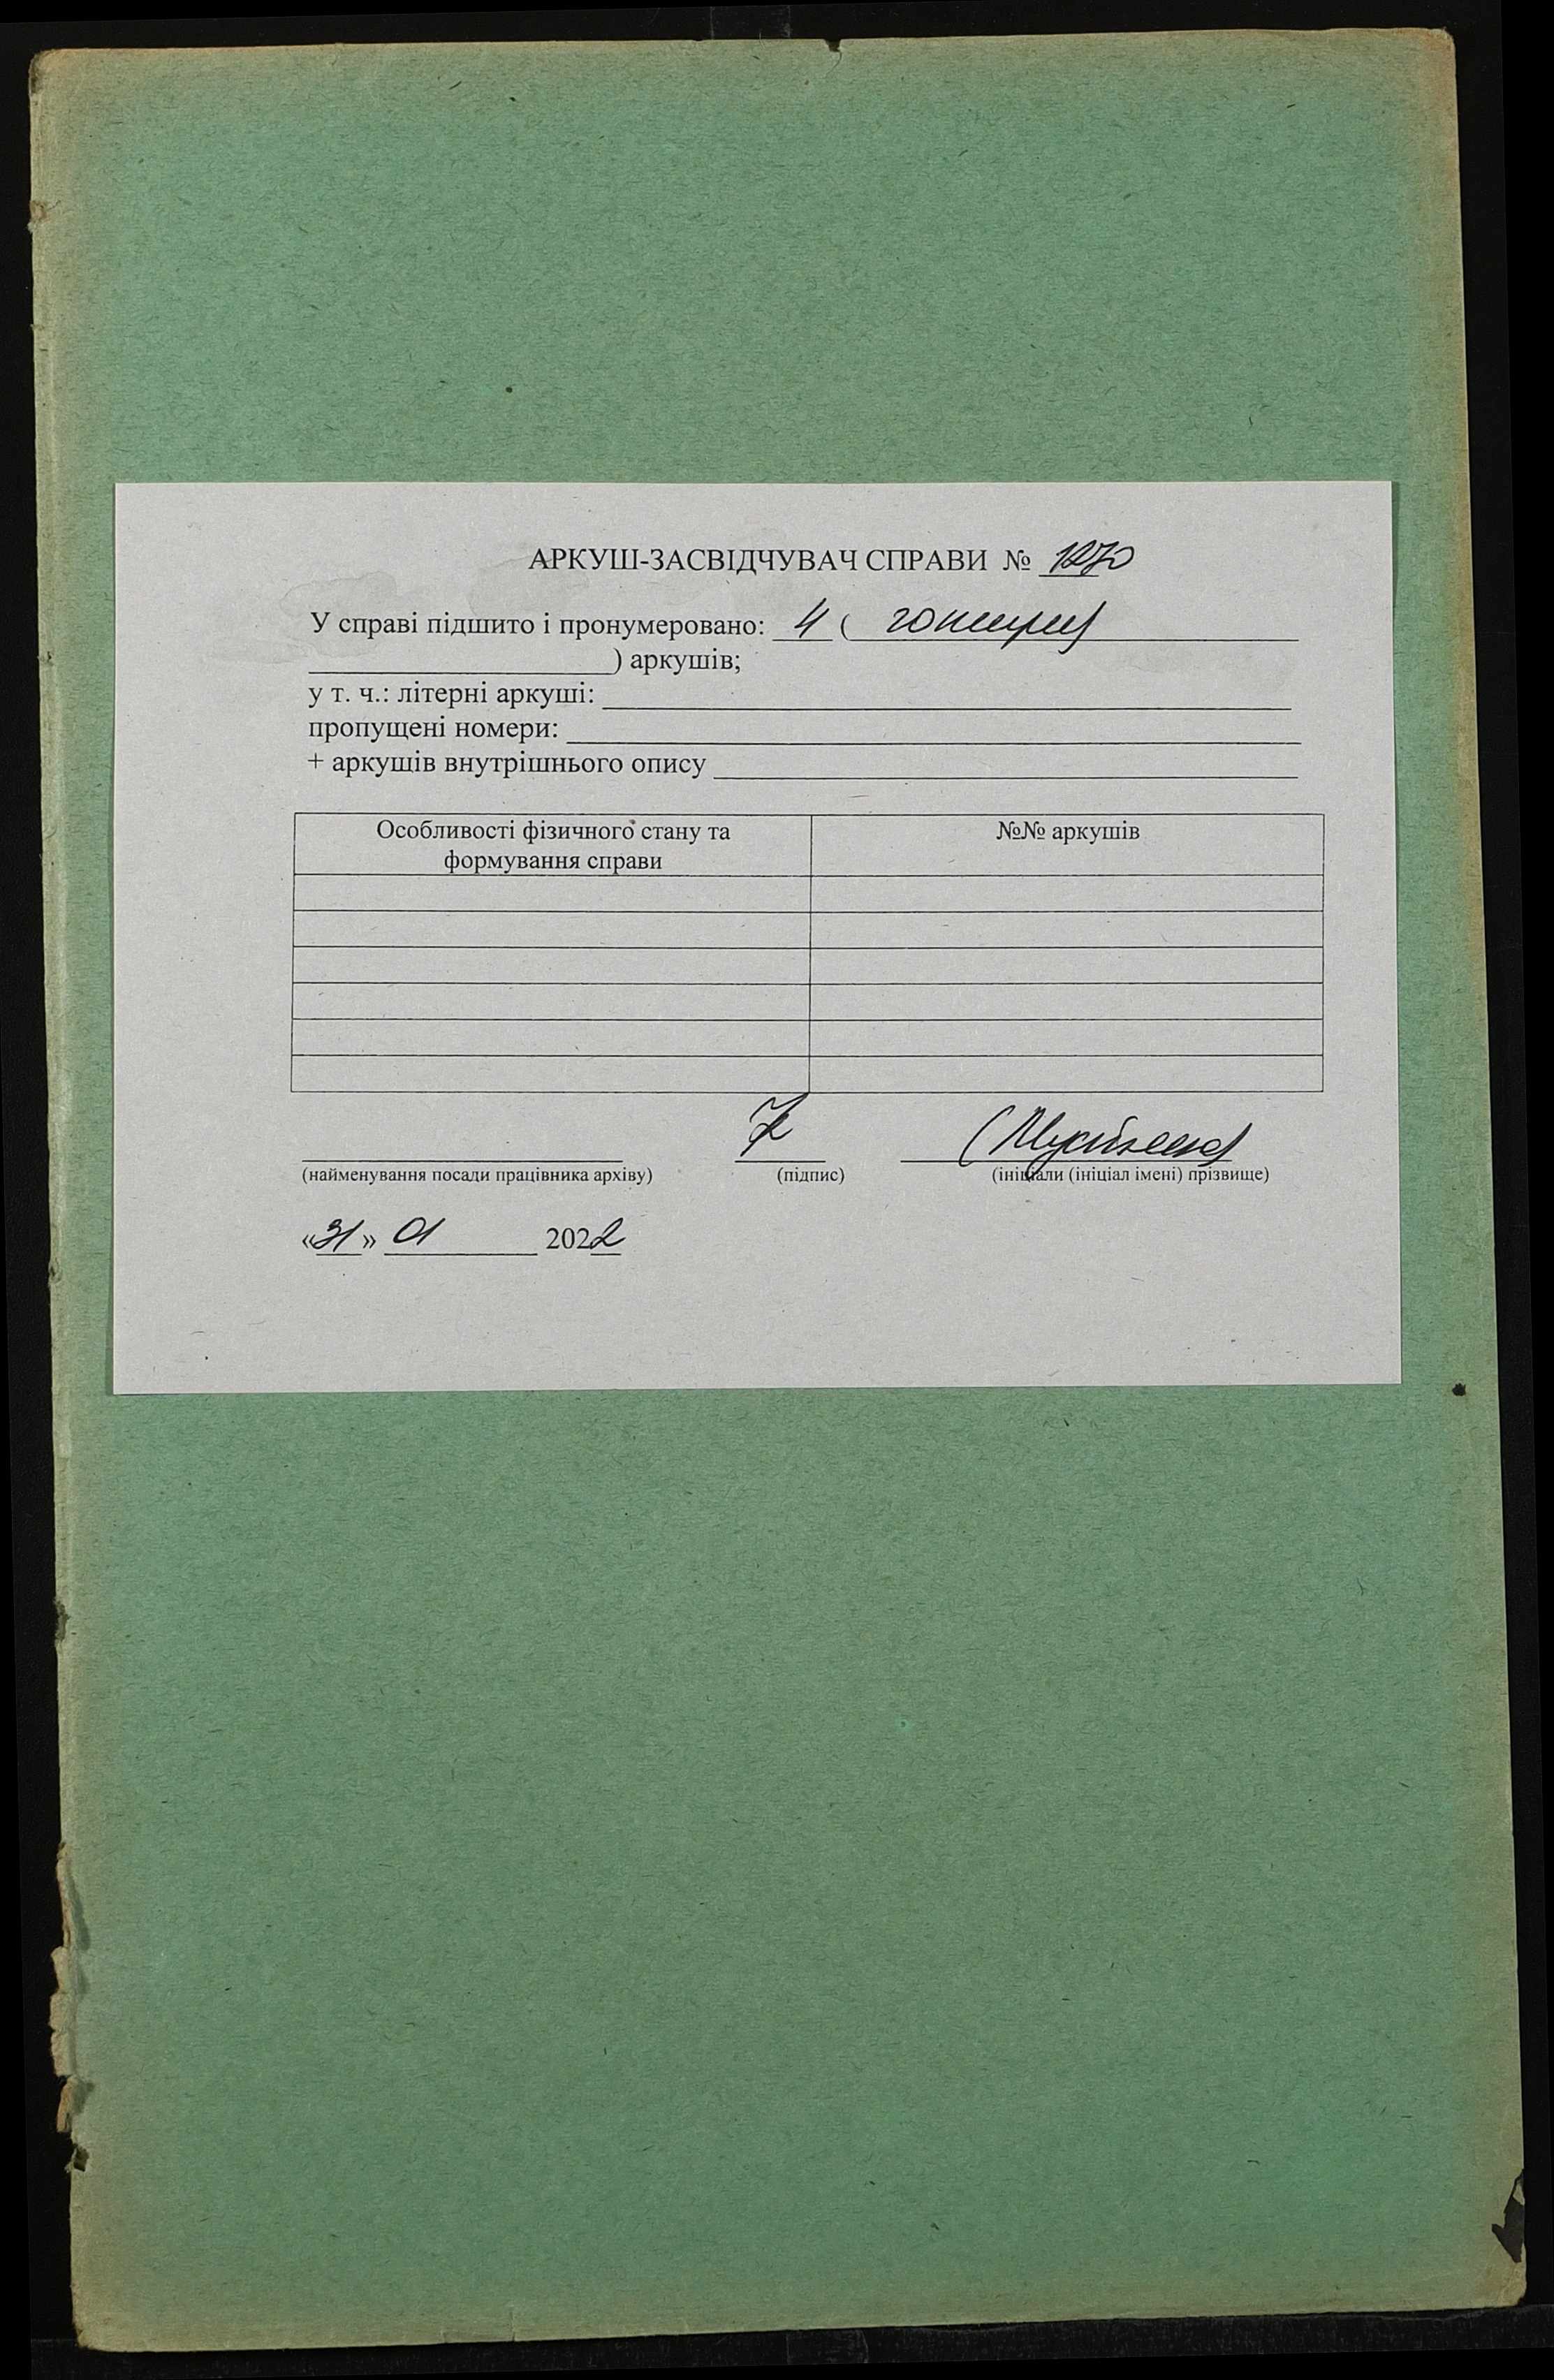 АРКУШ-ЗАСВІДЧУВАЧ СПРАВИ № 1270
У справі підшито і пронумеровано: 4 ( чотири
) аркушів;
у т. ч.: літерні аркуші:
пропущені номери:
+ аркушів внутрішнього опису
Особливості фізичного стану та
формування справи
№№ аркушів
(найменування посади працівника архіву)
(підпис)
(ініціали (ініціал імені) прізвище)
«31» 01 2022